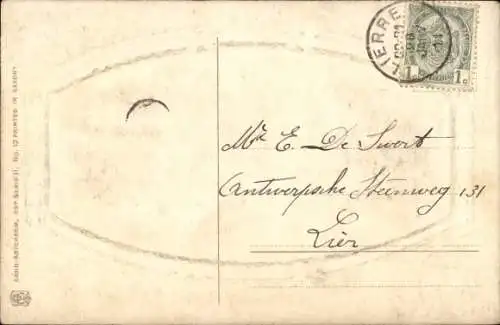 LIERRE
1c 1c
Mr E. De Swert
Antwerpsche Steenweg 131
Lier
No. 12 PRINTED IN SAXONY